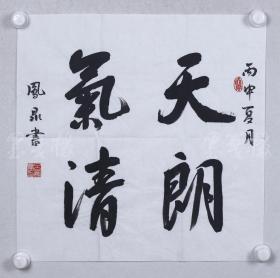 丙申夏月
天朗
氣清
鳳泉書